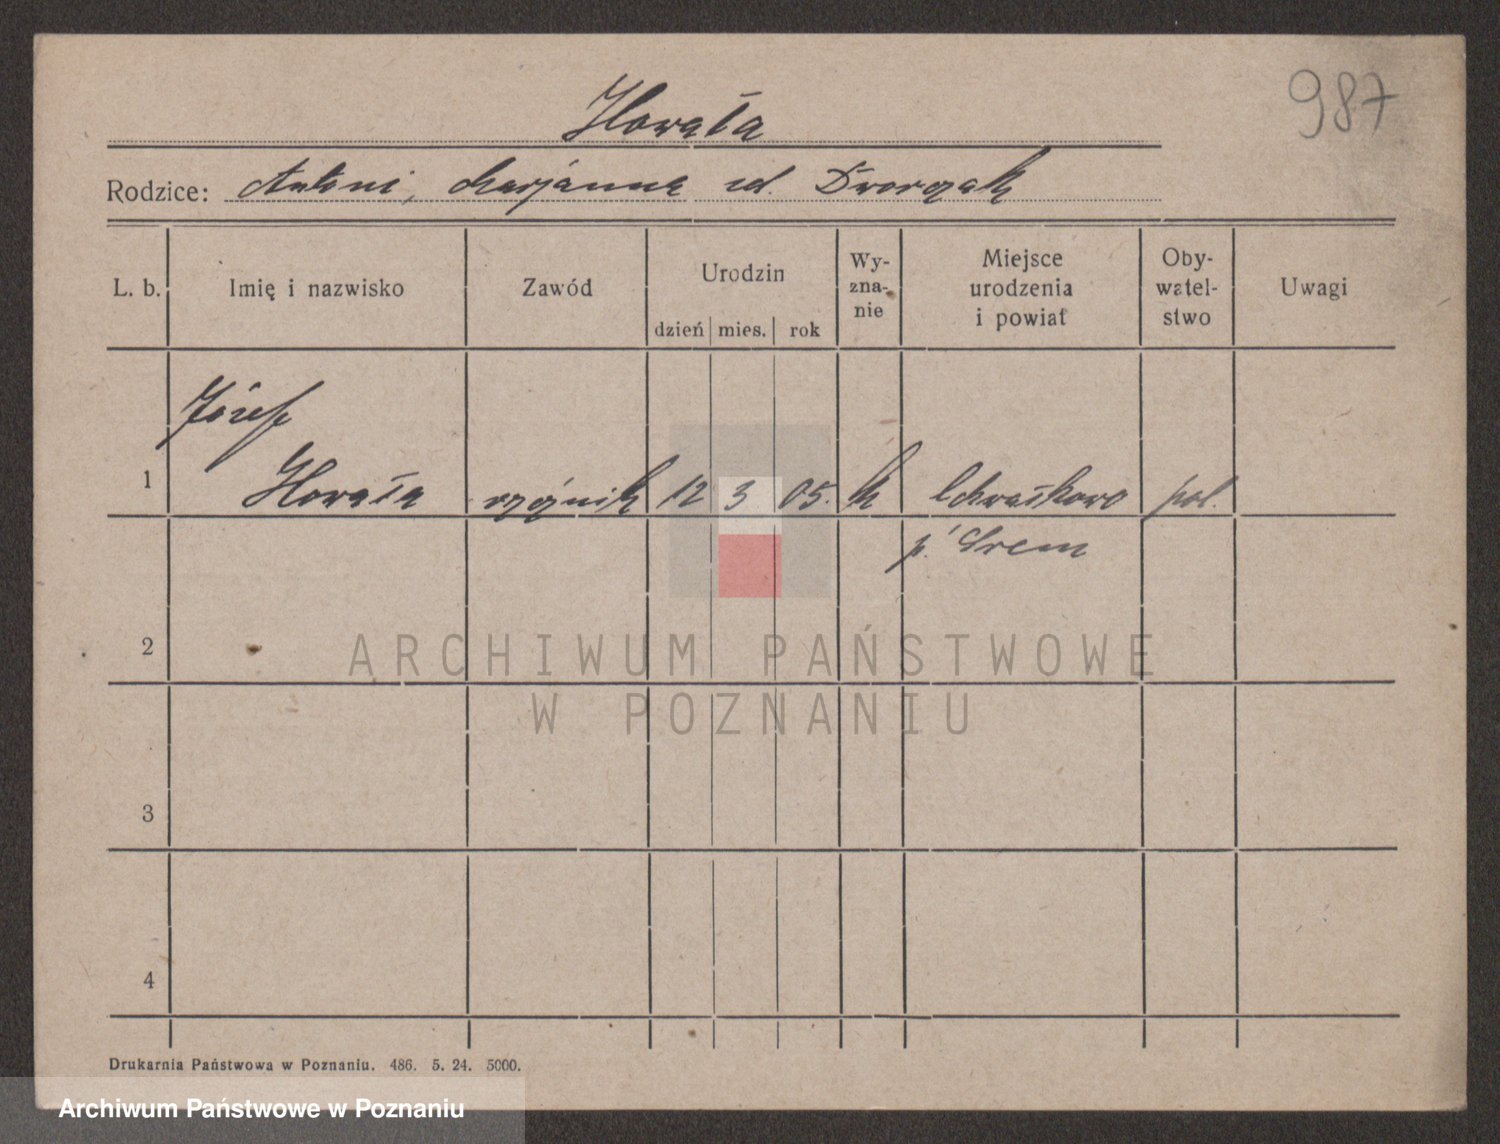 987
Howała
Rodzice: Antoni, Marjanna zd. Dworczak
L. b. Imię i nazwisko Zawód Urodzin Wy-zna-nie Miejsce urodzenia i powiat Oby-watel-stwo Uwagi
dzień mies. rok
Józef
1 Howała rzeźnik 12 3 05. k Chwałkowo pol.
p. Śrem
2
ARCHIWUM PAŃSTWOWE
W POZNANIU
3
4
Drukarnia Państwowa w Poznaniu. 486. 5. 24. 5000.
Archiwum Państwowe w Poznaniu